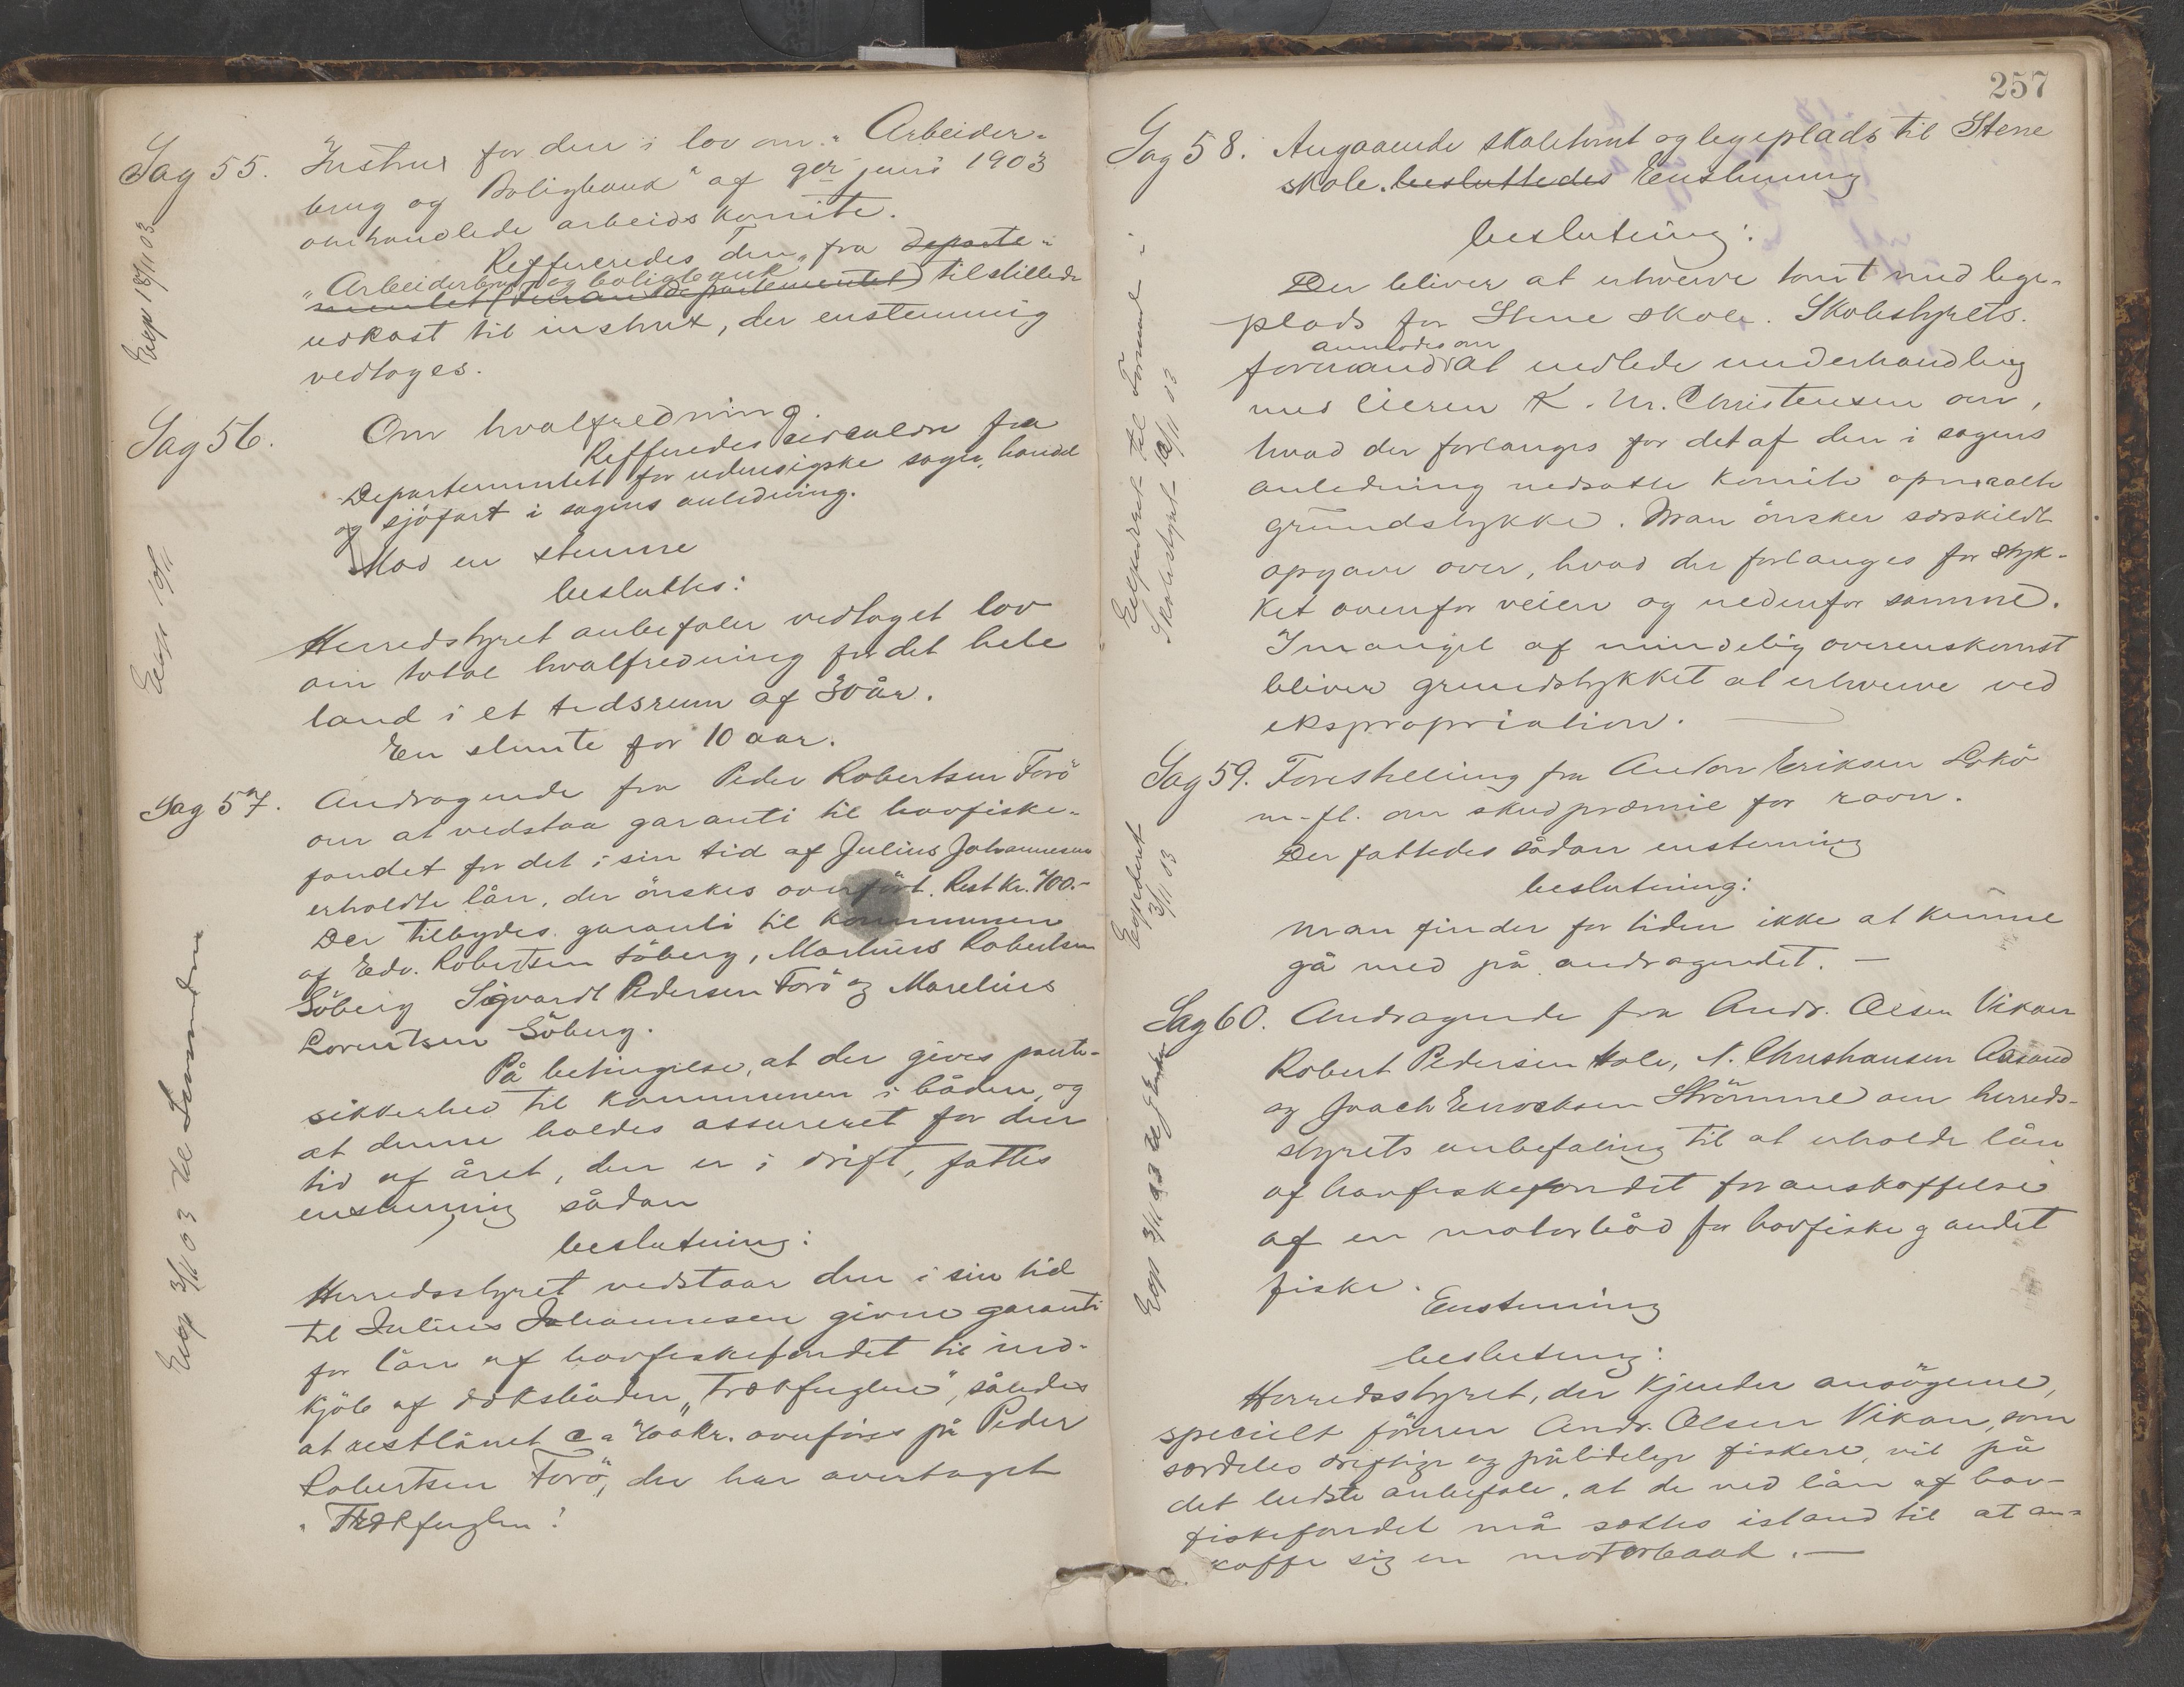 Sag 55. Instrux for den i lov om "Arbeider-
brug og Boligbank" af 9er juni 1903
omhandlede arbeidskomite.
Refferredes den fra Departe-
"Arbeiderbrug og boligbank"
mentet tilstillede
udkast til instrux, der enstemmig
vedtoges.
Exp 18/11 03
Sag 56. Om hvalfredning.
Refferedes cirkulære fra
Departementet for udenrigske sager, handel
og sjöfart i sagens anledning.
Mod en stemme
besluttes:
Herredstyret anbefaler vedtaget lov
om total hvalfredning for det hele
land i et tidsrum af 30 år.
En stemte for 10 aar.
Exp 10/11
Sag 57. Andragende fra Peder Robertsen Torö
om at vedstaa garanti til havfiske-
fondet for det i sin tid af Julius Johannesen
erholdte lån, der önskes overfört. Rest Kr. 400.-
Der tilbydes garanti til kommunen
af Edv. Robertsen Söberg, Martinus Robertsen
Söberg Sigvardt Pedersen Torö og Marelius
Lorentsen Söberg.
På betingelse, at der gives pante-
sikkerhed til kommunen i båden, og
at denne holdes assureret for den
tid af året, den er i drift, fattes
enstemmig sådan
beslutning:
Herredsstyret vedstaar den i sin tid
til Julius Johannesen givne garanti
for lån af havfiskefondet til ind-
kjöb af däksbåden "Trækfuglen", således
at restlånet ca 400 kr. overföres på Peder
Robertsen Torö, der har overtaget
"Trækfuglen".
Exp 3/11 03 til
257
Sag 58. Angaaende skoletomt og legeplads til Stene
skole. besluttedes Enstemmig
beslutning:
Der bliver at erhverve tomt med lege-
plads for Stene skole. Skolestyrets
anmodes om
formand at indlede underhandling
med eieren K. M. Christensen om,
hvad der forlanges for det af den i sagens
anledning nedsatte komite opmaalte
grundstykke. Man önsker særskildt
opgave over, hvad der forlanges for styk-
ket ovenfor veien og nedenfor samme.
I mangel af mindelig overenskomst
bliver grundstykket at erhverve ved
ekspropriation.
Expederet til Formand i
Skolestyret 10/11 03
Sag 59. Forestilling fra Anton Eriksen Lökö
m. fl. om skudpræmie for ravn.
Der fattedes sådan enstemmig
beslutning:
Man finder for tiden ikke at kunne
gå med på andragendet. —
Expederet
3/11 03
Sag 60. Andragende fra Andr. Olsen Vikan
Robert Pedersen Hole, N. Christiansen Aasand
og Joach Enocksen Strömme om herreds-
styrets anbefaling til at erholde lån
af havfiskefondet for anskaffelse
af en motorbåd for havfiske og andet
fiske.
Enstemmig
beslutning:
Herredsstyret, der kjender ansögerne,
specielt föreren Andr. Olsen Vikan, som
særdeles driftige og pålidelige fiskere, vil på
det bedste anbefale, at de ved lån af hav-
fiskefondet må sættes istand til at an-
skaffe sig en motorbaad. —
Exp 3/11 03 til